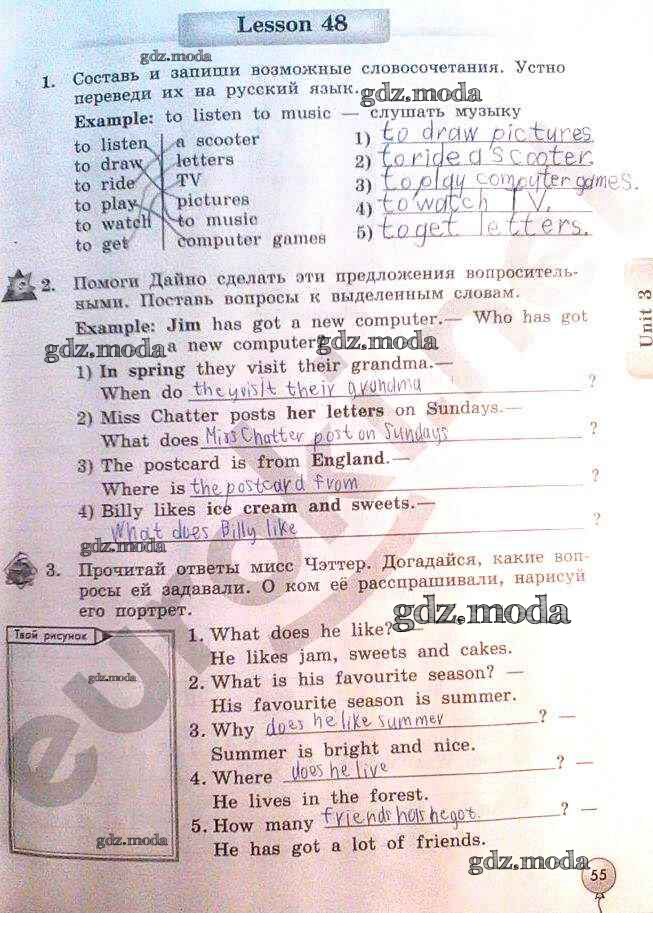 Lesson 48
gdz.moda
1. Составь и запиши возможные словосочетания. Устно
переведи их на русский язык.
gdz.moda
Example: to listen to music — слушать музыку
to listen a scooter
to draw letters
to ride TV
to play pictures
to watch to music
to get computer games
1) to draw pictures.
2) to ride a scooter.
3) to play computer games.
4) to watch TV.
5) to get letters.
2. Помоги Дайно сделать эти предложения вопроситель-
ными. Поставь вопросы к выделенным словам.
Example: Jim has got a new computer.— Who has got
a new computer?
gdz.moda
gdz.moda
Unit 3
1) In spring they visit their grandma.—
When do they visit their grandma ?
2) Miss Chatter posts her letters on Sundays.—
What does Miss Chatter post on Sundays ?
3) The postcard is from England.—
Where is the postcard from ?
4) Billy likes ice cream and sweets.—
What does Billy like ?
gdz.moda
3. Прочитай ответы мисс Чэттер. Догадайся, какие воп-
росы ей задавали. О ком её расспрашивали, нарисуй
его портрет.
gdz.moda
Твой рисунок
gdz.moda
1. What does he like? —
He likes jam, sweets and cakes.
2. What is his favourite season? —
His favourite season is summer.
3. Why does he like summer ? —
Summer is bright and nice.
4. Where does he live ? —
He lives in the forest.
5. How many friends has he got ? —
He has got a lot of friends.
gdz.moda
gdz.moda
55
euroki.net